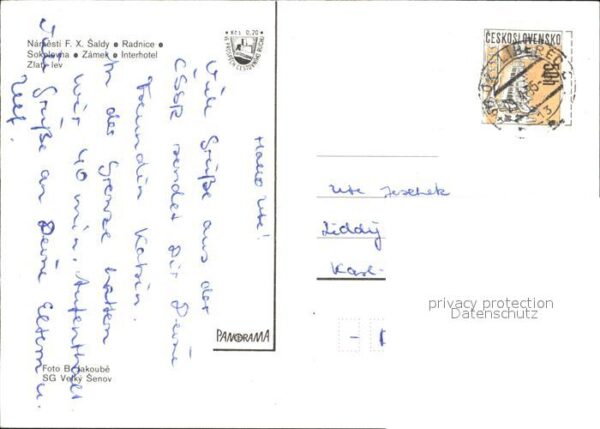 Náměstí F. X. Šaldy • Radnice •
Sokolovna • Zámek • Interhotel
Zlatý lev
Kčs 0,20
VE PROSPĚCH CESTOVNÍHO RUCHU
ČESKOSLOVENSKO
LIBEREC
Hallo Ute!
Viele Grüße aus der
ČSSR sendet Dir Deine
Freundin Katrin.
An der Grenze hatten
wir 40 min. Aufenthalt
Grüße an Deine Eltern u.
Ute Jeschek
Karl-
PANORAMA
privacy protection
Datenschutz
Foto B. Jakoubě
SG Velký Šenov